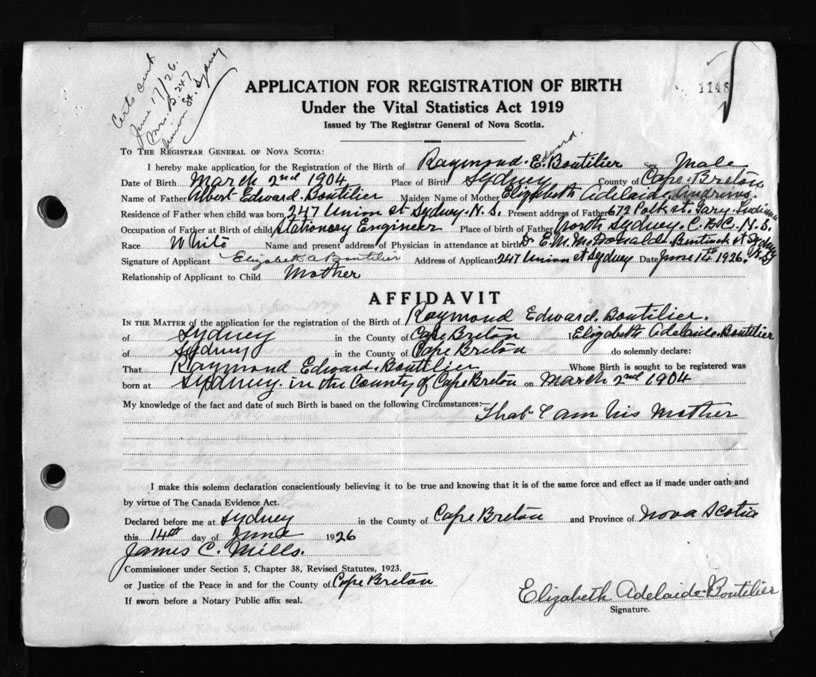 Certs sent
June 17/26.
247
Union St. Sydney
1148
APPLICATION FOR REGISTRATION OF BIRTH
Under the Vital Statistics Act 1919
Issued by The Registrar General of Nova Scotia.
To The Registrar General of Nova Scotia:
I hereby make application for the Registration of the Birth of Raymond. E.dward. Boutilier Sex Male
Date of Birth March 2nd 1904 Place of Birth Sydney County of Cape Breton
Name of Father Albert Edward Boutilier Maiden Name of Mother Elizabeth Adelaide Andrews
Residence of Father when child was born 247 Union St Sydney N.S. Present address of Father 612 Polk St. Gary. Indiana
Occupation of Father at Birth of child Stationary Engineer Place of birth of Father North Sydney. C.B.C. N.S.
Race White Name and present address of Physician in attendance at birth Dr E. M. McDonald Bentinck St Sydney N.S
Signature of Applicant Elizabeth A Boutilier Address of Applicant 247 Union St Sydney Date June 14th 1926.
Relationship of Applicant to Child Mother
AFFIDAVIT
In the Matter of the application for the registration of the Birth of Raymond Edward. Boutilier.
of Sydney in the County of Cape Breton I Elizabeth Adelaide Boutilier
of Sydney in the County of Cape Breton do solemnly declare:
That Raymond Edward. Boutilier Whose Birth is sought to be registered was
born at Sydney. in the County of Cape Breton on March 2nd 1904
My knowledge of the fact and date of such Birth is based on the following Circumstances:—
That I am his Mother
I make this solemn declaration conscientiously believing it to be true and knowing that it is of the same force and effect as if made under oath and
by virtue of The Canada Evidence Act.
Declared before me at Sydney in the County of Cape Breton and Province of Nova Scotia
this 14th day of June 1926
James C. Mills.
Commissioner under Section 5, Chapter 38, Revised Statutes, 1923.
or Justice of the Peace in and for the County of Cape Breton
If sworn before a Notary Public affix seal.
Elizabeth Adelaide Boutilier
Signature.